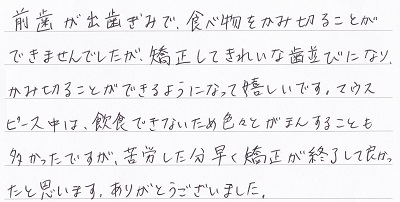 前歯が出歯ぎみで、食べ物をかみ切ることが
できませんでしたが、矯正してきれいな歯並びになり、
かみ切ることができるようになって嬉しいです。マウス
ピース中は、飲食できないため色々とがまんすることも
多かったですが、苦労した分早く矯正が終了して良かっ
たと思います。ありがとうございました。